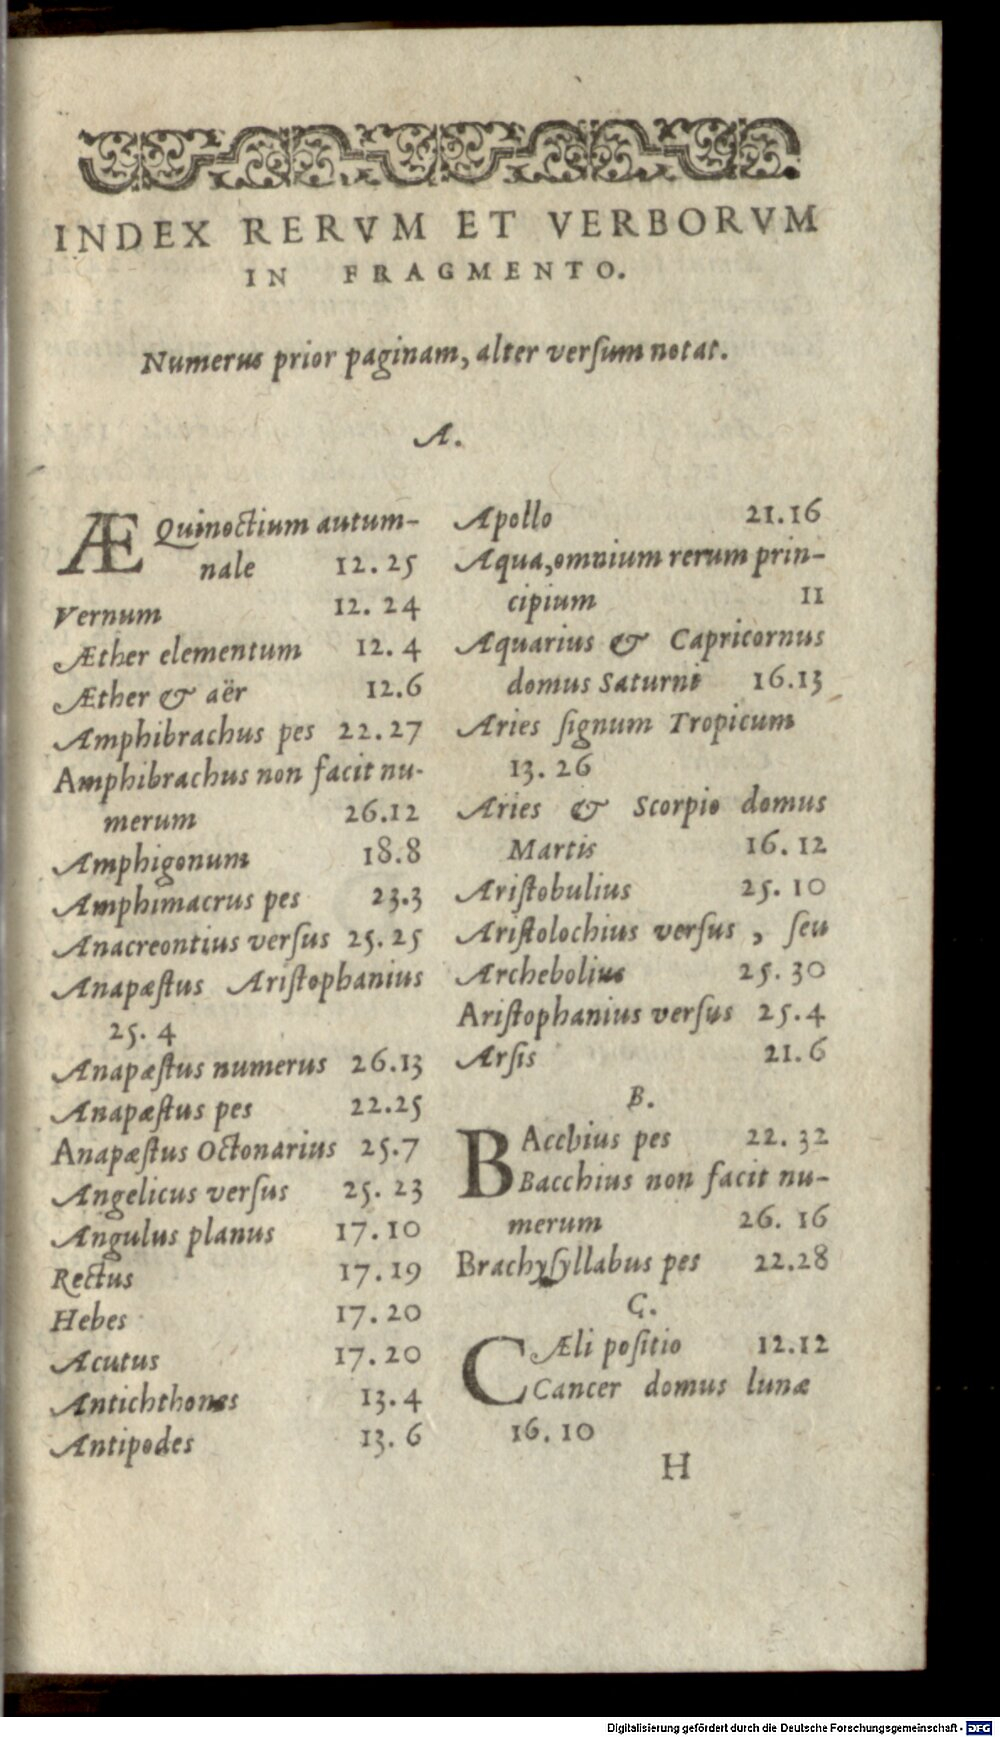 INDEX RERVM ET VERBORVM
IN FRAGMENTO.
Numerus prior paginam, alter verſum notat.
A.
ÆQuinoctium autum-
nale 12.25
Vernum 12. 24
Æther elementum 12. 4
Æther & aër 12.6
Amphibrachus pes 22.27
Amphibrachus non facit nu-
merum 26.12
Amphigonum 18.8
Amphimacrus pes 23.3
Anacreontius verſus 25.25
Anapæſtus Ariſtophanius
25. 4
Anapæſtus numerus 26.13
Anapæſtus pes 22.25
Anapæſtus Octonarius 25.7
Angelicus verſus 25. 23
Angulus planus 17.10
Rectus 17.19
Hebes 17.20
Acutus 17.20
Antichthones 13.4
Antipodes 13. 6
Apollo 21.16
Aqua, omnium rerum prin-
cipium 11
Aquarius & Capricornus
domus Saturni 16.13
Aries ſignum Tropicum
13. 26
Aries & Scorpio domus
Martis 16. 12
Ariſtobulius 25. 10
Ariſtolochius verſus , ſeu
Archebolius 25. 30
Ariſtophanius verſus 25.4
Arſis 21. 6
B.
BAccbius pes 22. 32
Bacchius non facit nu-
merum 26. 16
Brachyſyllabus pes 22.28
C.
CÆli poſitio 12.12
Cancer domus lunæ
16. 10
H
Digitalisierung gefördert durch die Deutsche Forschungsgemeinschaft - DFG